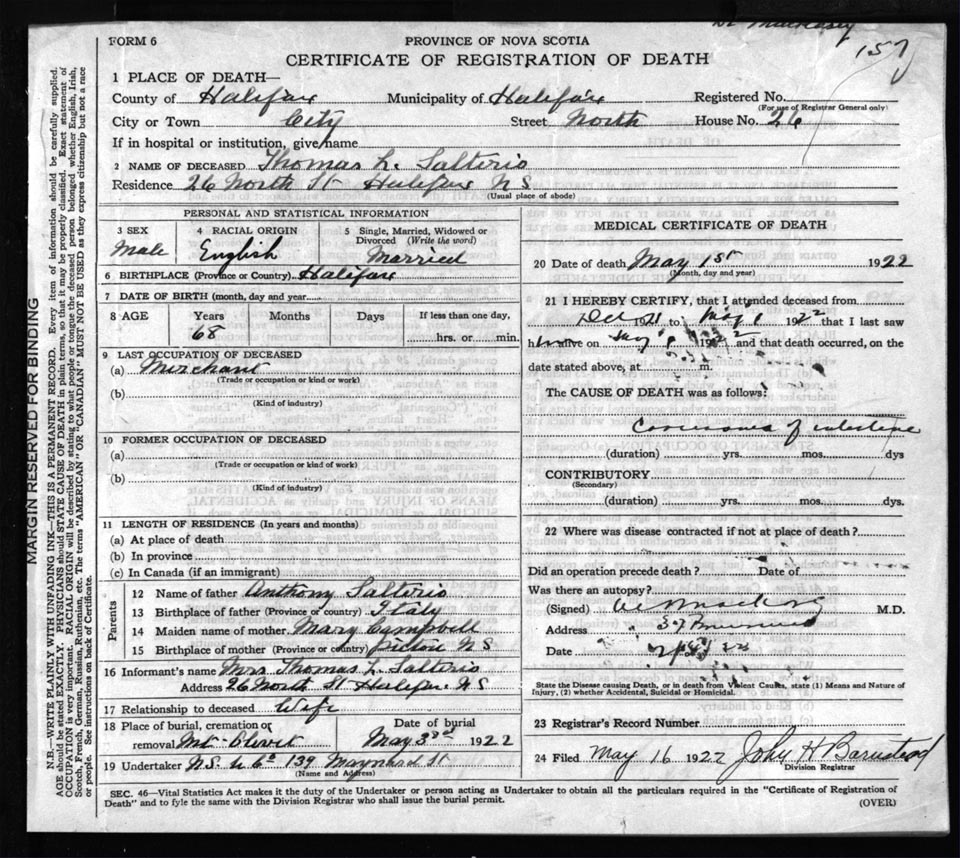 FORM 6
PROVINCE OF NOVA SCOTIA
CERTIFICATE OF REGISTRATION OF DEATH
157
1 PLACE OF DEATH—
County of Halifax Municipality of Halifax Registered No.
(For use of Registrar General only)
City or Town City Street North House No. 26
If in hospital or institution, give name
2 NAME OF DECEASED Thomas L. Salterio
Residence 26 North St Halifax N S
(Usual place of abode)
PERSONAL AND STATISTICAL INFORMATION
3 SEX 4 RACIAL ORIGIN 5 Single, Married, Widowed or Divorced (Write the word)
Male English Married
6 BIRTHPLACE (Province or Country) Halifax
7 DATE OF BIRTH (month, day and year)
8 AGE Years Months Days If less than one day,
68 hrs. or min.
9 LAST OCCUPATION OF DECEASED
(a) Merchant
(Trade or occupation or kind or work)
(b)
(Kind of industry)
10 FORMER OCCUPATION OF DECEASED
(a)
(Trade or occupation or kind of work)
(b)
(Kind of industry)
11 LENGTH OF RESIDENCE (In years and months)
(a) At place of death
(b) In province
(c) In Canada (if an immigrant)
Parents
12 Name of father Anthony Salterio
13 Birthplace of father (Province or country) Italy
14 Maiden name of mother Mary Campbell
15 Birthplace of mother (Province or country) Pictou N S
16 Informant's name Mrs Thomas L. Salterio
Address 26 North St Halifax N S
17 Relationship to deceased Wife
18 Place of burial, cremation or Date of burial
removal Mt Olivet May 3rd 1922
19 Undertaker N.S. U Co 139 Maynard St
(Name and Address)
MEDICAL CERTIFICATE OF DEATH
20 Date of death May 1st 1922
(Month, day and year)
21 I HEREBY CERTIFY, that I attended deceased from
to May 1 1922 that I last saw
alive on and that death occurred, on the
date stated above, at m.
The CAUSE OF DEATH was as follows:
Carcinoma of intestine
(duration) yrs. mos. dys
CONTRIBUTORY
(Secondary)
(duration) yrs. mos. dys.
22 Where was disease contracted if not at place of death?
Did an operation precede death? Date of
Was there an autopsy?
(Signed) M.D.
Address
Date
State the Disease causing Death, or in death from Violent Causes, state (1) Means and Nature of
Injury, (2) whether Accidental, Suicidal or Homicidal.
23 Registrar's Record Number
24 Filed May 16 1922 John H Barnstead
Division Registrar
SEC. 46—Vital Statistics Act makes it the duty of the Undertaker or person acting as Undertaker to obtain all the particulars required in the "Certificate of Registration of
Death" and to fyle the same with the Division Registrar who shall issue the burial permit.
(OVER)
MARGIN RESERVED FOR BINDING
N.B.—WRITE PLAINLY WITH UNFADING INK—THIS IS A PERMANENT RECORD. Every item of information should be carefully supplied.
AGE should be stated EXACTLY. PHYSICIANS should STATE CAUSE OF DEATH in plain terms, so that it may be properly classified. Exact statement of
OCCUPATION is very important. RACIAL ORIGIN will be described by stating to what people or tongue the deceased person belonged whether English, Irish,
Scotch, French, German, Russian, Ruthenian, etc. The terms "AMERICAN" OR "CANADIAN" MUST NOT BE USED as they express citizenship but not a race
or people. See instructions on back of Certificate.